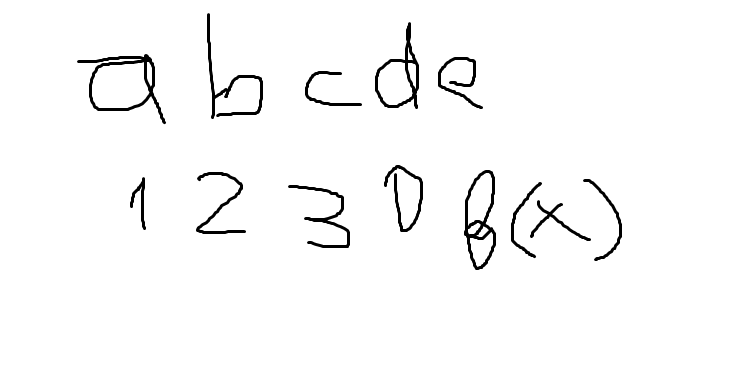 a b c d e
1 2 3 0 f(x)